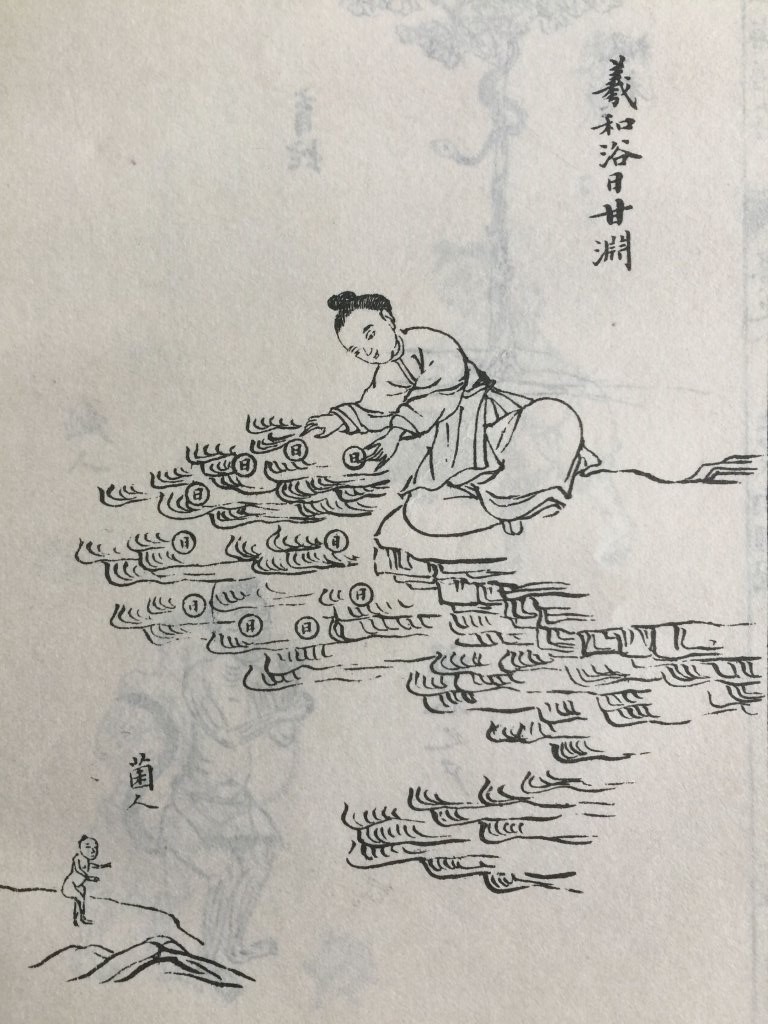 羲和浴日甘淵
日
日
日
日
日
日
日
日
日
日
菌人